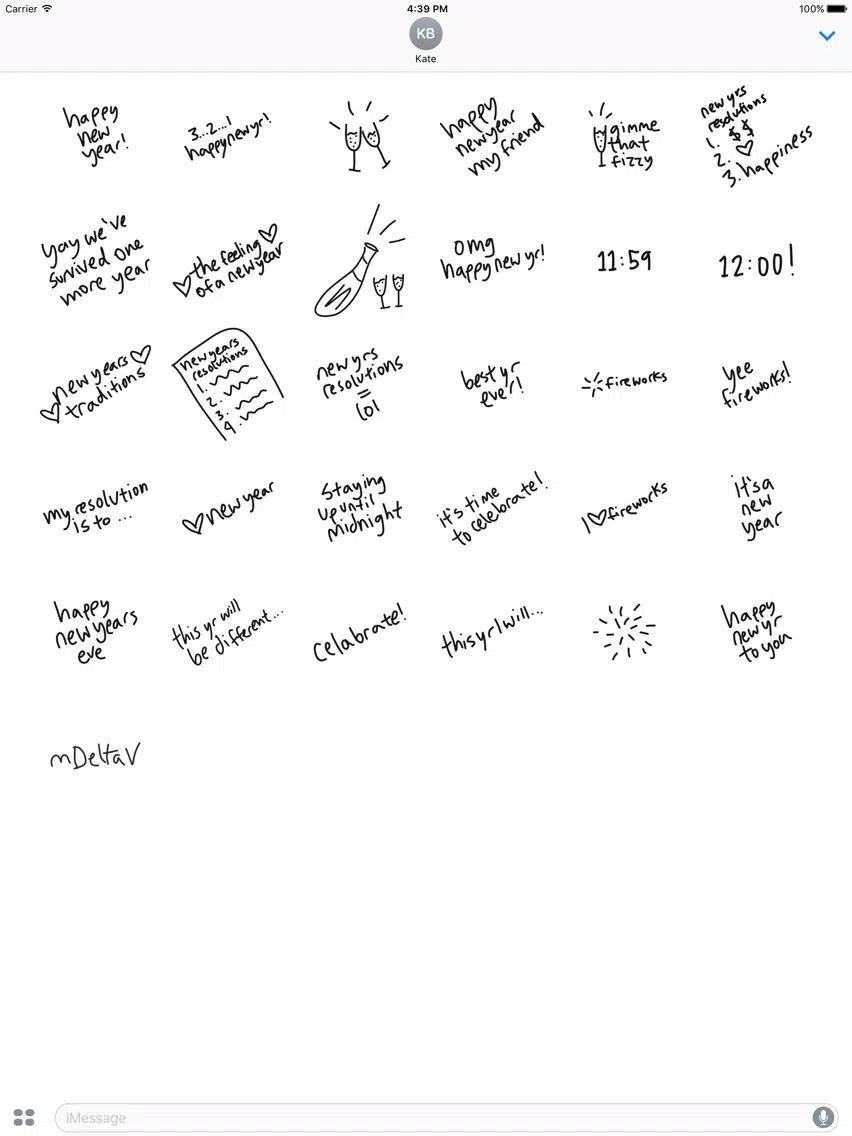 Carrier
4:39 PM
100%
KB
Kate
happy
new
year!
3...2...1
happy new yr!
happy
new year
my friend
gimme
that
fizzy
new yrs
resolutions
1. $ $
2. ♡
3. happiness
yay we've
survived one
more year
♡ the feeling ♡
of a new year
omg
happy new yr!
11:59
12:00!
new years ♡
♡ traditions
new years
resolutions
1.
2.
3.
4.
new yrs
resolutions
=
lol
best yr
ever!
fireworks
yee
fireworks!
my resolution
is to ...
♡ new year
staying
up until
midnight
it's time
to celebrate!
I ♡ fireworks
it's a
new
year
happy
new years
eve
this yr will
be different...
celabrate!
this yr I will...
happy
new yr
to you
mDeltaV
iMessage